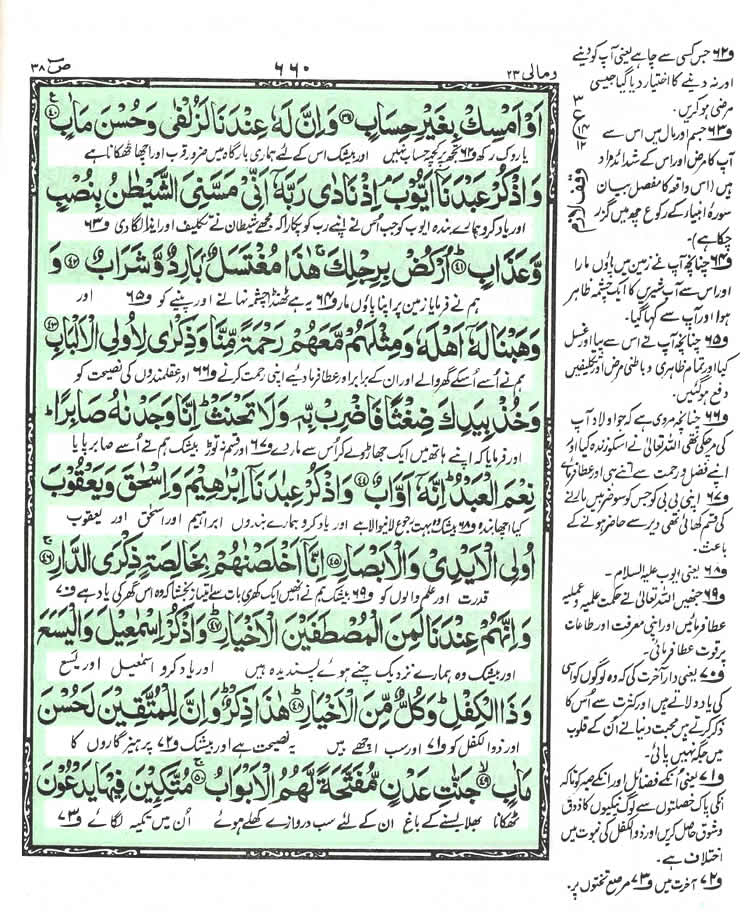 ومالی ۲۳
۶۶۰
صٓ ۳۸
اَوْ اَمْسِكْ بِغَيْرِ حِسَابٍ ۝۳۹ وَاِنَّ لَهٗ عِنْدَنَا لَزُلْفٰى وَحُسْنَ مَاٰبٍ ۝۴۰
یا روک رکھ ف۶۲ تجھ پر کچھ حساب نہیں اور بیشک اس کے لئے ہماری بارگاہ میں ضرور قرب اور اچھا ٹھکانا ہے
وَاذْكُرْ عَبْدَنَاۤ اَيُّوْبَ ۘ اِذْ نَادٰى رَبَّهٗۤ اَنِّىْ مَسَّنِىَ الشَّيْطٰنُ بِنُصْبٍ
اور یاد کرو ہمارے بندہ ایوب کو جب اُس نے اپنے رب کو پکارا کہ مجھے شیطان نے تکلیف اور ایذا لگا دی ف۶۳
وَّعَذَابٍ ۝۴۱ اُرْكُضْ بِرِجْلِكَ ۚ هٰذَا مُغْتَسَلٌۢ بَارِدٌ وَّشَرَابٌ ۝۴۲ وَ
ہم نے فرمایا زمین پر اپنا پاؤں مار ف۶۴ یہ ہے ٹھنڈا چشمہ نہانے اور پینے کو ف۶۵ اور
وَهَبْنَا لَهٗۤ اَهْلَهٗ وَمِثْلَهُمْ مَّعَهُمْ رَحْمَةً مِّنَّا وَذِكْرٰى لِاُولِى الْاَلْبَابِ ۝۴۳
ہم نے اُسے اُسکے گھر والے اور ان کے برابر اور عطا فرما دیے اپنی رحمت کرنے ف۶۶ اور عقلمندوں کی نصیحت کو
وَخُذْ بِيَدِكَ ضِغْثًا فَاضْرِبْ بِّهٖ وَلَا تَحْنَثْ ؕ اِنَّا وَجَدْنٰهُ صَابِرًا ؕ
اور فرمایا کہ اپنے ہاتھ میں ایک جھاڑو لے کر اُس سے مار دے ف۶۷ اور قسم نہ توڑ بیشک ہم نے اُسے صابر پایا
نِعْمَ الْعَبْدُ ؕ اِنَّهٗۤ اَوَّابٌ ۝۴۴ وَاذْكُرْ عِبٰدَنَاۤ اِبْرٰهِيْمَ وَاِسْحٰقَ وَيَعْقُوْبَ
کیا اچھا بندہ ف۶۸ بیشک وہ بہت رجوع لانیوالا ہے اور یاد کرو ہمارے بندوں ابراہیم اور اسحٰق اور یعقوب
اُولِى الْاَيْدِىْ وَالْاَبْصَارِ ۝۴۵ اِنَّاۤ اَخْلَصْنٰهُمْ بِخَالِصَةٍ ذِكْرَى الدَّارِ ۝۴۶
قدرت اور علم والوں کو ف۶۹ بیشک ہم نے اُنھیں ایک کھری بات سے امتیاز بخشا کہ وہ اس گھر کی یاد ہے ف۷۰
وَاِنَّهُمْ عِنْدَنَا لَمِنَ الْمُصْطَفَيْنَ الْاَخْيَارِ ۝۴۷ وَاذْكُرْ اِسْمٰعِيْلَ وَالْيَسَعَ
اور بیشک وہ ہمارے نزدیک چنے ہوئے پسندیدہ ہیں اور یاد کرو اسمٰعیل اور یسع
وَذَا الْكِفْلِ ؕ وَكُلٌّ مِّنَ الْاَخْيَارِ ۝۴۸ هٰذَا ذِكْرٌ ؕ وَاِنَّ لِلْمُتَّقِيْنَ لَحُسْنَ
اور ذو الکفل کو ف۷۱ اور سب اچھے ہیں یہ نصیحت ہے اور بیشک ف۷۲ پرہیزگاروں کا
مَاٰبٍ ۝۴۹ جَنّٰتِ عَدْنٍ مُّفَتَّحَةً لَّهُمُ الْاَبْوَابُ ۝۵۰ مُتَّكِـِٕيْنَ فِيْهَا يَدْعُوْنَ
ٹھکانا بھلا بسنے کے باغ ان کے لئے سب دروازے کھلے ہوئے اُن میں تکیہ لگائے ف۷۳
ع
۳
۱۴
۱۲
وقف لازم
ف۶۲ جس کسی سے چاہے یعنی آپ کو دینے
اور نہ دینے کا اختیار دیا گیا جیسی
مرضی ہو کریں۔
ف۶۳ جسم اور مال میں اس سے
آپ کا مرض اور اس کے شدائد مراد
ہیں (اس واقعہ کا مفصل بیان
سورۂ انبیاء کے رکوع چھ میں گزر
چکا ہے)۔
ف۶۴ چنانچہ آپ نے زمین میں پاؤں مارا
اور اس سے آبِ شیریں کا ایک چشمہ ظاہر
ہوا اور آپ سے کہا گیا۔
ف۶۵ چنانچہ آپ نے اس سے پیا اور غسل
کیا اور تمام ظاہری و باطنی مرض اور تکلیفیں
دفع ہو گئیں۔
ف۶۶ چنانچہ مروی ہے کہ جو اولاد آپ
کی مر چکی تھی اللہ تعالیٰ نے اسکو زندہ کیا اور
اپنے فضل و رحمت سے اتنے ہی اور عطا فرمائے
ف۶۷ اپنی بی بی کو جس کو سو ضربیں مارنے
کی قسم کھائی تھی دیر سے حاضر ہونے کے
باعث۔
ف۶۸ یعنی ایوب علیہ السلام۔
ف۶۹ جنھیں اللہ تعالیٰ نے حکمت علمیہ و عملیہ
عطا فرمائیں اور اپنی معرفت اور طاعات
پر قوت عطا فرمائی۔
ف۷۰ یعنی دارِ آخرت کی کہ وہ لوگوں کو اسی
کی یاد دلاتے ہیں اور کثرت سے اُس کا
ذکر کرتے ہیں محبت دنیا نے اُن کے قلوب
میں جگہ نہیں پائی۔
ف۷۱ یعنی اُنکے فضائل اور انکے صبر کو تاکہ
اُنکی پاک خصلتوں سے لوگ نیکیوں کا ذوق
و شوق حاصل کریں اور ذو الکفل کی نبوت میں
اختلاف ہے۔
ف۷۲ آخرت میں ف۷۳ مرصع تختوں پر۔